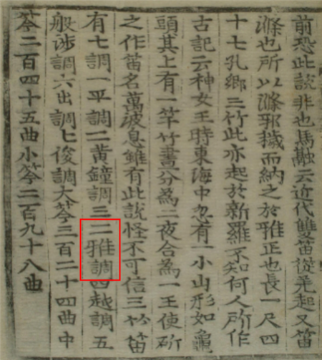 前恐此說非也馬融云近代雙笛從羌起又笛
滌也所以滌邪穢而納之於雅正也長一尺四
十七孔鄉三竹此亦起於新羅不知何人所作
古記云神文王時東海中忽有一小山形如龜
頭其上有一竿竹晝分爲二夜合爲一王使斫
之作笛名萬波息雖有此說怪不可信三竹笛
有七調一平調二黃鐘調三二雅調四越調五
般涉調六出調七俊調大笒三百二十四曲中
笒二百四十五曲小笒二百九十八曲